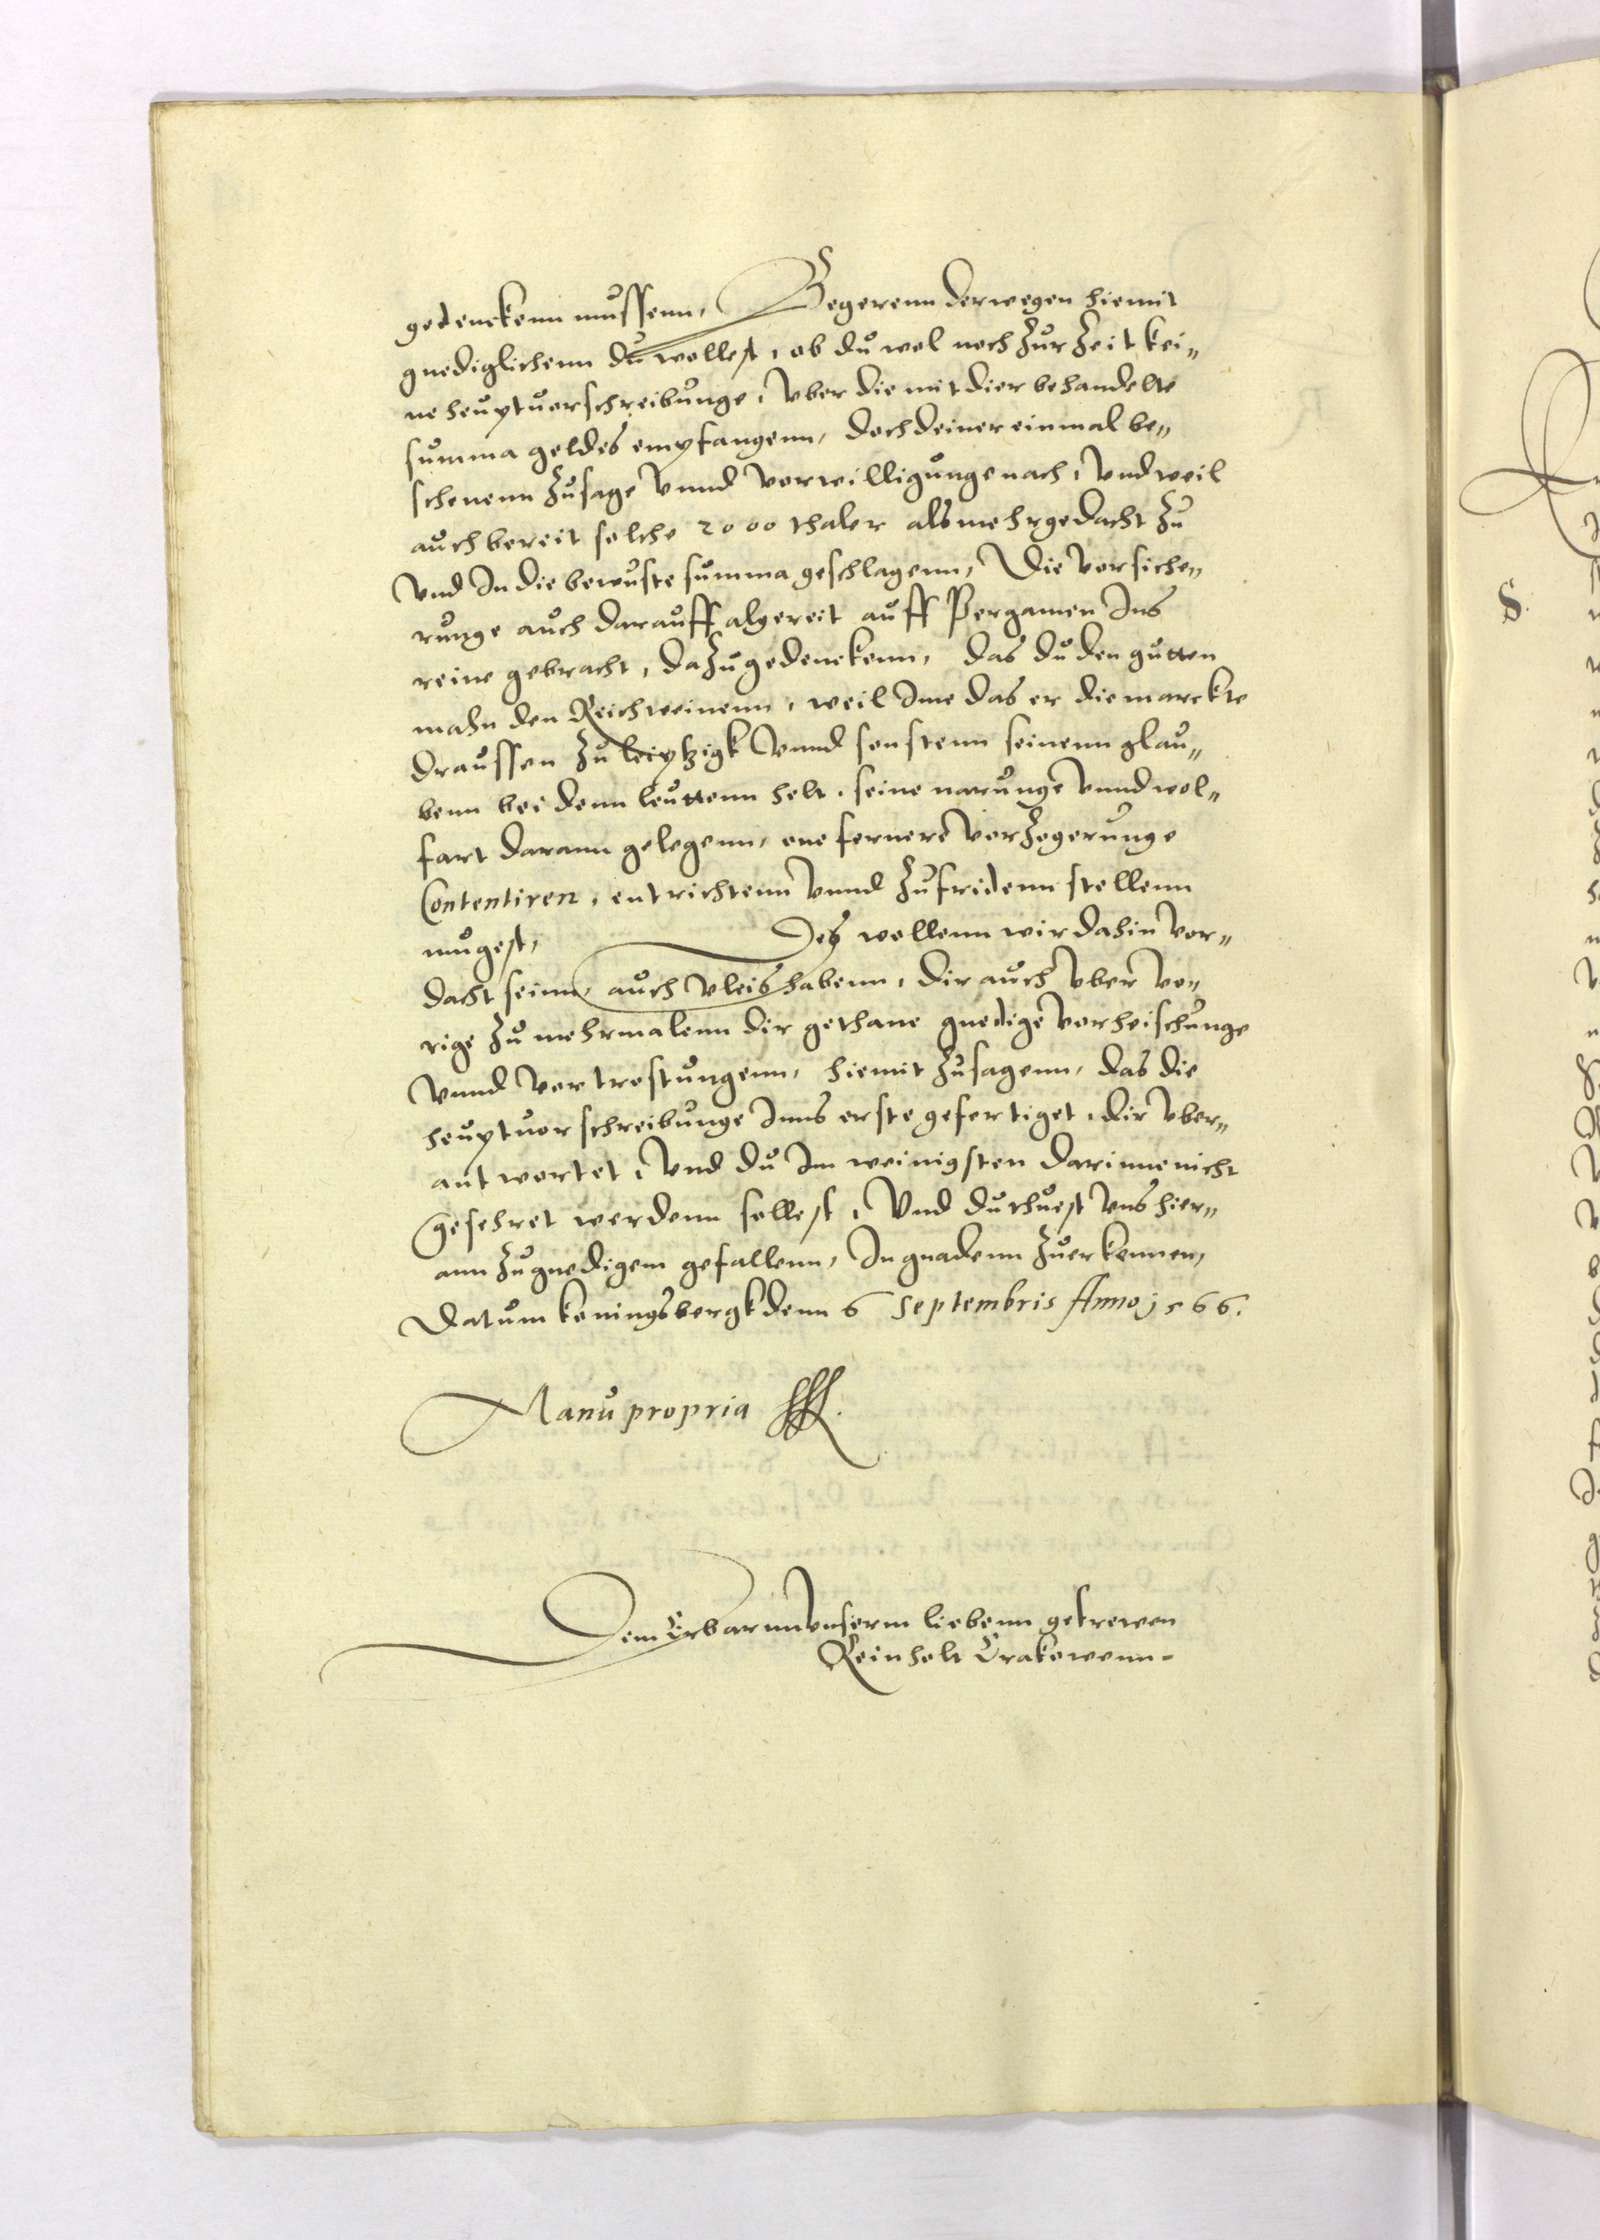 gedenckenn mussenn, Begerenn derwegen hiemit
gnediglichenn du wollest, ob du wol noch zur zeit kei„
ne heuptuorschreibunge, vber die mit dier behandelte
summa geldes empfangenn, doch deiner einmal be„
schenenn zusage vnnd vorwilligunge nach, vnd weil
auch bereit solche 2000 thaler als mehrgedacht zu
vnd In die bewuste summa geschlagenn, Die vorsiche„
runge auch darauff algereit auff Pergamen Ins
reine gebracht, dazu gedenckenn, das du den gutten
mahn den Reichweinenn, weil Ime das er die marckte
draussen zu leiptzigk vnnd sonstenn seinenn glau„
benn bei denn leuttenn helt, seine narunge vnnd wol„
fart darann gelegenn, one fernere vorzogerunge
Contentiren, entrichtenn vnnd zufridenn stellenn
mugest, Des wollenn wir dahin vor„
dacht seinn, auch vleis habenn, dir auch vber vo„
rige zu mehrmalenn dir gethane gnedige vorheischunge
vnnd vortrostungenn, hiemit zusagenn, das die
heuptuorschreibunge Inns erste gefertiget, dir vber„
antwortet, vnd du Im weinigsten darinne nicht
gefehret werdenn sollest, Vnd du thuest vns hier„
ann zu gnedigem gefallenn, In gnadenn zuerkennen,
Datum koningsbergk denn 6 Septembris Anno 1566.
Manu propria
Dem Erbarnn vnserm liebenn getrewen
Reinholt Crakowenn
S.